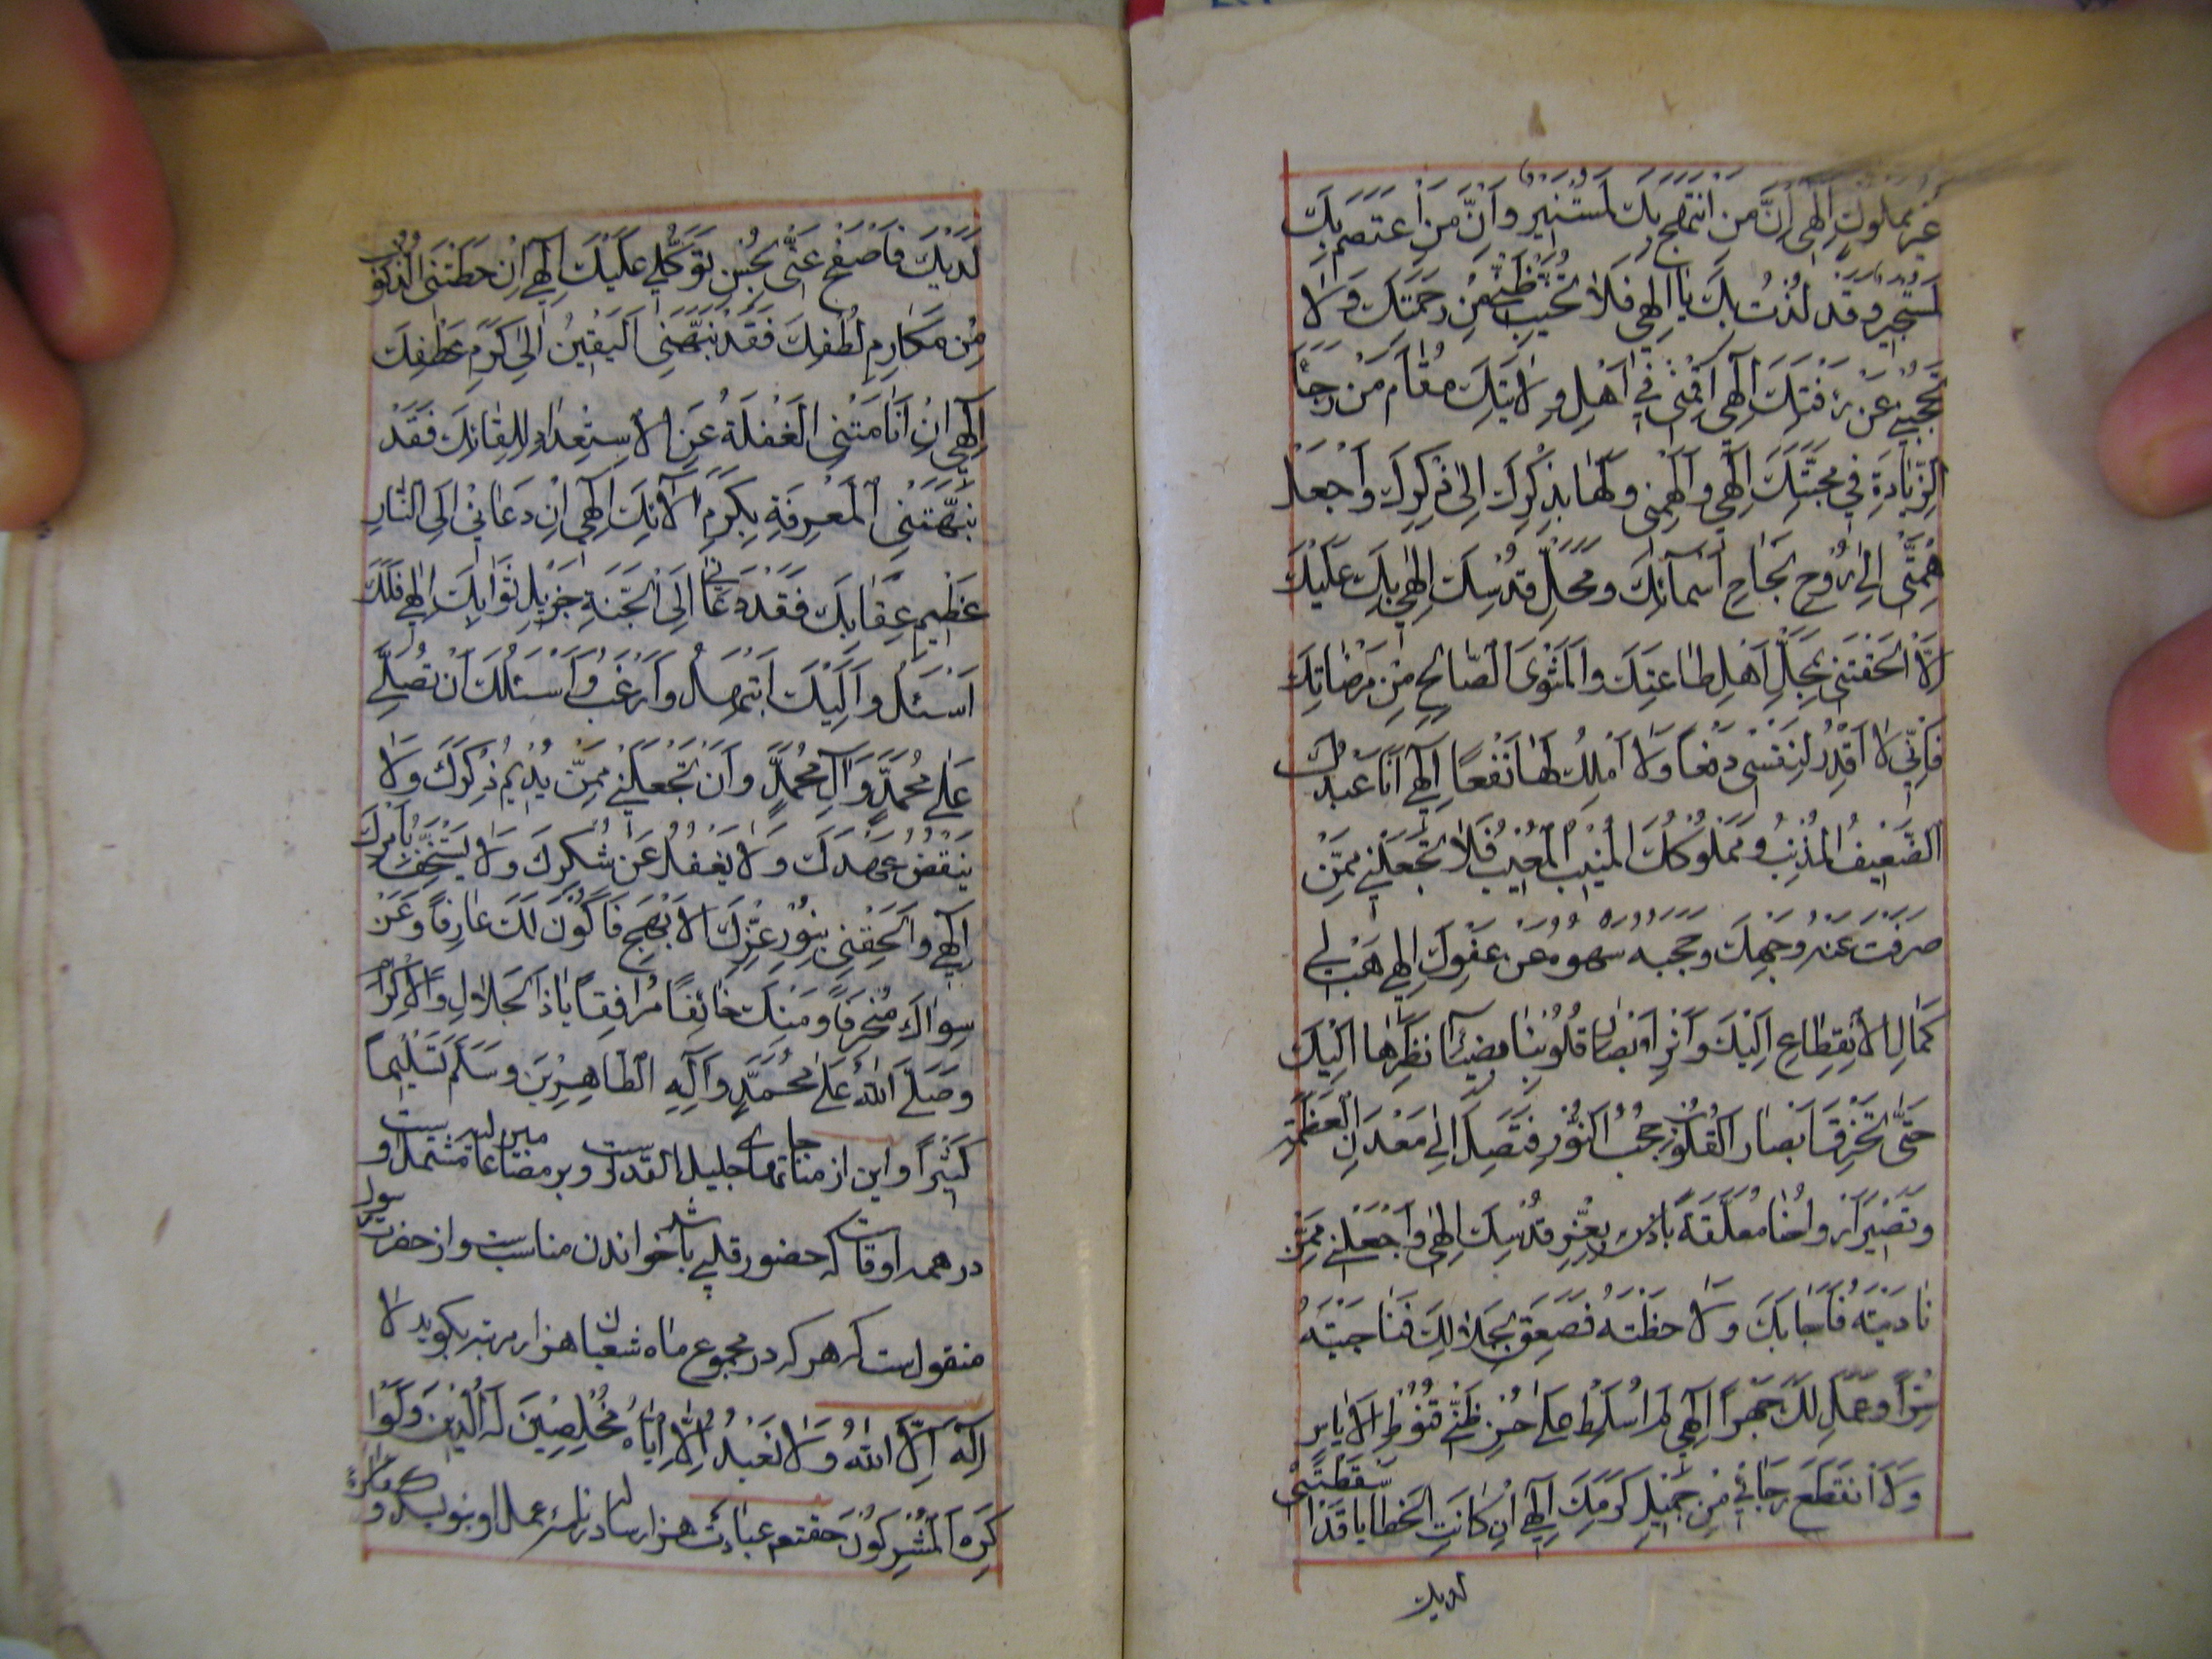 غَيْرُ مَمْلُولٍ اِلٰهِى اِنَّ مَنِ انْتَهَجَ بِكَ لَمُسْتَنِيْرٌ وَاِنَّ مَنِ اعْتَصَمَ بِكَ
لَمُسْتَجِيْرٌ وَقَدْ لُذْتُ بِكَ يَا اِلٰهِى فَلَا تُخَيِّبْ ظَنِّى مِنْ رَحْمَتِكَ وَلَا
تَحْجُبْنِى عَنْ رَأْفَتِكَ اِلٰهِى اَقِمْنِى فِى اَهْلِ وِلَايَتِكَ مُقَامَ مَنْ رَجَا
الزِّيَادَةَ فِى مَحَبَّتِكَ اِلٰهِى وَاَلْهِمْنِى وَلَهًا بِذِكْرِكَ اِلٰى ذِكْرِكَ وَاجْعَلْ
هِمَّتِى اِلٰى رَوْحِ نَجَاحِ اَسْمَآئِكَ وَمَحَلِّ قُدْسِكَ اِلٰهِى بِكَ عَلَيْكَ
اِلَّا اَلْحَقْتَنِى بِمَحَلِّ اَهْلِ طَاعَتِكَ وَالْمَثْوَى الصَّالِحِ مِنْ مَرْضَاتِكَ
فَاِنِّى لَا اَقْدِرُ لِنَفْسِى دَفْعًا وَلَا اَمْلِكُ لَهَا نَفْعًا اِلٰهِى اَنَا عَبْدُكَ
الضَّعِيْفُ الْمُذْنِبُ وَمَمْلُوكُكَ الْمُنِيْبُ الْمَعِيْبُ فَلَا تَجْعَلْنِى مِمَّنْ
صَرَفْتَ عَنْهُ وَجْهَكَ وَحَجَبَهُ سَهْوُهُ عَنْ عَفْوِكَ اِلٰهِى هَبْ لِى
كَمَالَ الْاِنْقِطَاعِ اِلَيْكَ وَاَنِرْ اَبْصَارَ قُلُوبِنَا بِضِيَآءِ نَظَرِهَا اِلَيْكَ
حَتّٰى تَخْرِقَ اَبْصَارُ الْقُلُوبِ حُجُبَ النُّوْرِ فَتَصِلَ اِلٰى مَعْدِنِ الْعَظَمَةِ
وَتَصِيْرَ اَرْوَاحُنَا مُعَلَّقَةً بِعِزِّ قُدْسِكَ اِلٰهِى وَاجْعَلْنِى مِمَّنْ
نَادَيْتَهُ فَاَجَابَكَ وَلَاحَظْتَهُ فَصَعِقَ بِجَلَالِكَ فَنَاجَيْتَهُ
سِرًّا وَعَمِلَ لَكَ جَهْرًا اِلٰهِى لَمْ اُسَلِّطْ عَلٰى حُسْنِ ظَنِّى قُنُوطَ الْاَيَاسِ
وَلَا انْقَطَعَ رَجَائِى مِنْ جَمِيْلِ كَرَمِكَ اِلٰهِى اِنْ كَانَتِ الْخَطَايَا قَدْ اَسْقَطَتْنِى
لديك
لَدَيْكَ فَاصْفَحْ عَنِّى بِحُسْنِ تَوَكُّلِى عَلَيْكَ اِلٰهِى اِنْ حَطَّتْنِى الذُّنُوبُ
مِنْ مَكَارِمِ لُطْفِكَ فَقَدْ نَبَّهَنِى الْيَقِيْنُ اِلٰى كَرَمِ عَطْفِكَ
اِلٰهِى اِنْ اَنَامَتْنِى الْغَفْلَةُ عَنِ الْاِسْتِعْدَادِ لِلِقَائِكَ فَقَدْ
نَبَّهَتْنِى الْمَعْرِفَةُ بِكَرَمِ آلَآئِكَ اِلٰهِى اِنْ دَعَانِى اِلَى النَّارِ
عَظِيْمُ عِقَابِكَ فَقَدْ دَعَانِى اِلَى الْجَنَّةِ جَزِيْلُ ثَوَابِكَ اِلٰهِى فَلَكَ
اَسْئَلُ وَاِلَيْكَ اَبْتَهِلُ وَاَرْغَبُ وَاَسْئَلُكَ اَنْ تُصَلِّىَ
عَلٰى مُحَمَّدٍ وَآلِ مُحَمَّدٍ وَاَنْ تَجْعَلَنِى مِمَّنْ يُدِيْمُ ذِكْرَكَ وَلَا
يَنْقُضُ عَهْدَكَ وَلَا يَغْفُلُ عَنْ شُكْرِكَ وَلَا يَسْتَخِفُّ بِاَمْرِكَ
اِلٰهِى وَاَلْحِقْنِى بِنُوْرِ عِزِّكَ الْاَبْهَجِ فَاَكُوْنَ لَكَ عَارِفًا وَعَنْ
سِوَاكَ مُنْحَرِفًا وَمِنْكَ خَائِفًا مُرَافِقًا يَا ذَا الْجَلَالِ وَالْاِكْرَامِ
وَصَلَّى اللهُ عَلٰى مُحَمَّدٍ وَآلِهِ الطَّاهِرِيْنَ وَسَلَّمَ تَسْلِيْمًا
كَثِيْرًا و اين از مناجاتهاى جليل القدرست و بر مضامين عاليه مشتملست و
در همه اوقات كه حضور قلبى باشد خواندن مناسبست و از حضرت رسول
منقولست كه هر كه در مجموع ماه شعبان هزار مرتبه بكويد لَا
اِلٰهَ اِلَّا اللهُ وَلَا نَعْبُدُ اِلَّا اِيَّاهُ مُخْلِصِيْنَ لَهُ الدِّيْنَ وَلَوْ
كَرِهَ الْمُشْرِكُوْنَ حقتعم عبادت هزار ساله در نامهٔ عمل او بنويسد و